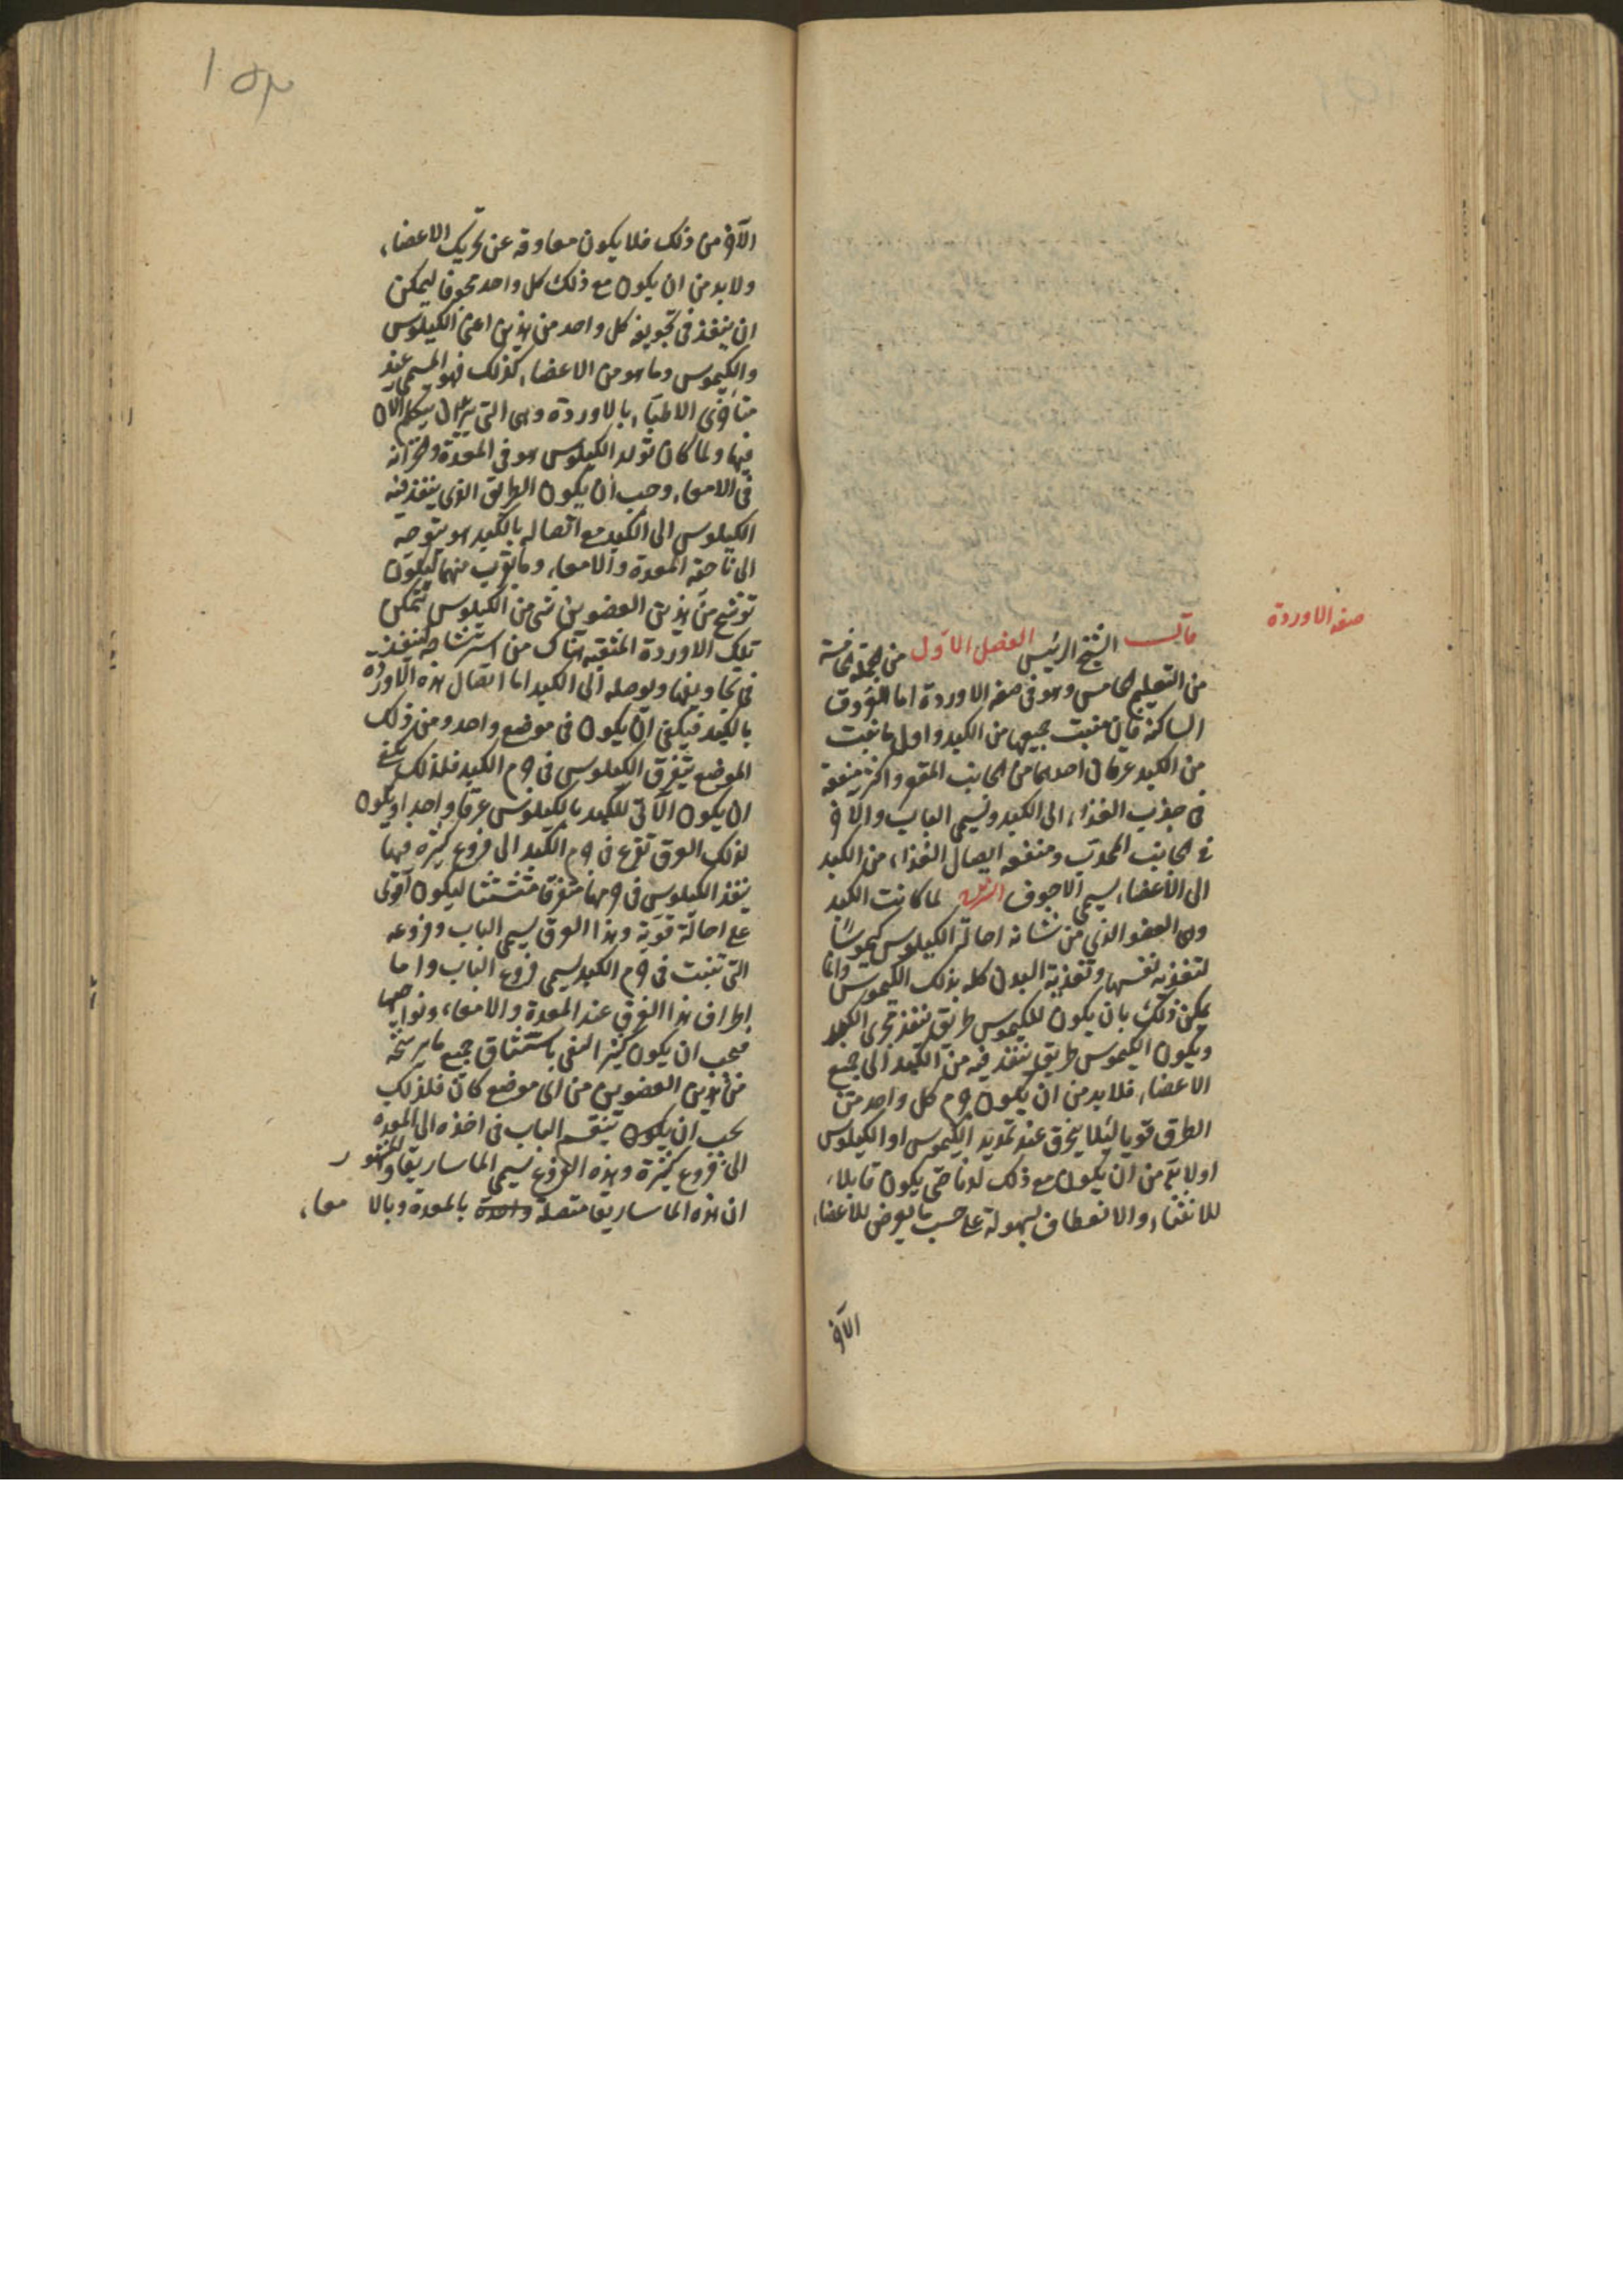 صفة الاوردة
قال الشيخ الرئيس الفصل الاول من الجملة الخامسة
من التعليم الخامس وهو فى صفة الاوردة اما العروق
الساكنة فان منبت جميعها من الكبد واول ما ينبت
من الكبد عرقان احدهما من الجانب المقعر واكثر منفعته
فى جذب الغذاء الى الكبد ويسمى الباب والاخر
فى الجانب المحدب ومنفعته ايصال الغذاء من الكبد
الى الاعضاء يسمى الاجوف الشرح لما كانت الكبد
وهى العضو الذي من شانه احالة الكيلوس كيموسا
لتغذية نفسها وتغذية البدن كله بذلك الكيموس وانما
يمكن ذلك بان يكون للكيموس طريق ينفذ مجرى الكبد
ويكون الكيموس طريق ينفذ فيه من الكبد الى جميع
الاعضاء فلا بد من ان يكون جرم كل واحد من
الطرق قويا لئلا ينخرق عند تمديد الكيموس او الكيلوس
اولا بد من ان يكون مع ذلك لدنا حتى يكون قابلا
للانثناء والانعطاف بسهولة على حسب ما يعرض للاعضاء
الآخر
١٥٣
الآخر من ذلك فلا يكون معاوقه عن تحريك الاعضاء
ولا بد من ان يكون مع ذلك كل واحد مجوفا ليمكن
ان ينفذ فى تجويفه كل واحد من هذين اعنى الكيلوس
والكيموس وما هو من الاعضاء كذلك فهو المسمى عند
متأخرى الاطباء بالاوردة وهى التى نريد ان نتكلم الان
فيها ولما كان تولد الكيلوس هو فى المعدة وخزانه
فى الامعاء وجب ان يكون الطريق الذى ينفذ فيه
الكيلوس الى الكبد مع اتصاله بالكبد هو متوجه
الى ناحية المعدة والامعاء وما يقرب منهما ليكون
ترشح من هذين العضوين شى من الكيلوس تتمكن
تلك الاوردة المنفتحة هناك من استرشاحه لينفذ
فى تجاويفها ويوصله الى الكبد اما اتصال هذه الاوردة
بالكبد فيكفى ان يكون فى موضع واحد ومن ذلك
الموضع يتفرق الكيلوس فى جرم الكبد فلذلك يكفى
ان يكون الآتى للكبد بالكيلوس عرقا واحدا ويكون
لذلك العرق تفرع فى جرم الكبد الى فروع كثيرة فيها
ينفذ الكيلوس فى جرمها متفرقا متشتتا ليكون اقوى
على احالة قوية وهذا العرق يسمى الباب وفروعه
التى تنبت فى جرم الكبد يسمى فروع الباب واما
اطراف هذا العرق عند المعدة والامعاء ونواحيها
فيجب ان يكون كثيرا لتفى باستنشاق جميع ما يرشحه
من هذين العضوين من اى موضع كان فلذلك
يجب ان يكون ينقسم الباب فى اخذه الى المعدة
الى فروع كثيرة وهذه الفروع يسمى الماساريقا والمشهور
ان هذه الماساريقا متصلة واحدة بالمعدة وبالامعاء